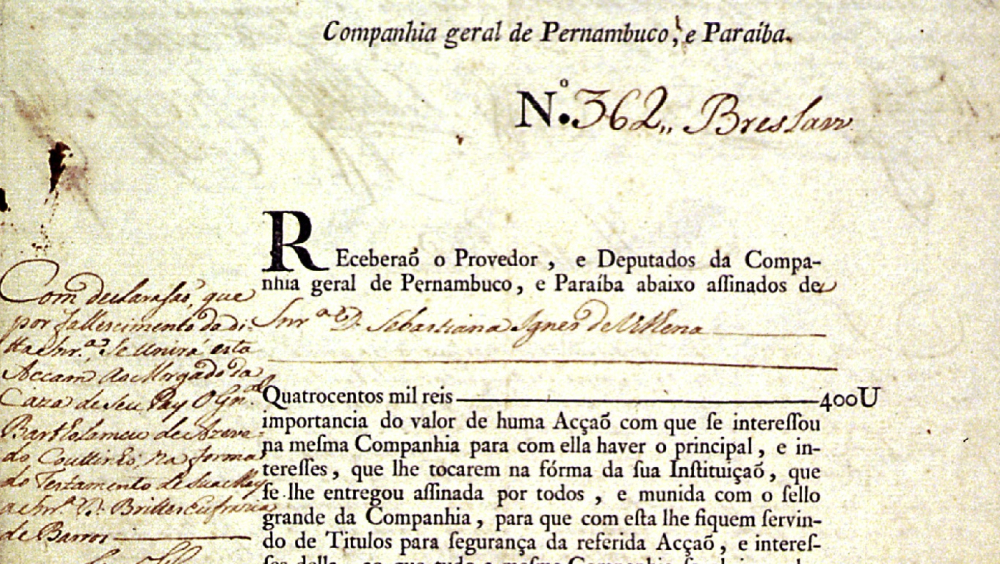 Companhia geral de Pernambuco, e Paraíba.
Nº. 362,, Breslau
REceberaõ o Provedor, e Deputados da Compa-
nhia geral de Pernambuco, e Paraíba abaixo aſſinados de
Snrª D. Sebastiana Ignes de Vilhena
Quatrocentos mil reis 400U
importancia do valor de huma Acçaõ com que ſe intereſſou
na meſma Companhia para com ella haver o principal, e in-
tereſſes, que lhe tocarem na fórma da ſua Inſtituiçaõ, que
ſe lhe entregou aſſinada por todos, e munida com o ſello
grande da Companhia, para que com eſta lhe fiquem ſervin-
do de Titulos para ſegurança da referida Acçaõ, e intereſ-
Com declarasaõ, que
por falescimento da di-
tta Snrª, Se Unirá esta
Accam ao Morgado da
Caza de Seu Pay O Gnal
Bartholameu de Azeve-
do Couttinho, na forma
do Testamento de Sua May
a Snrª D.
de Barros